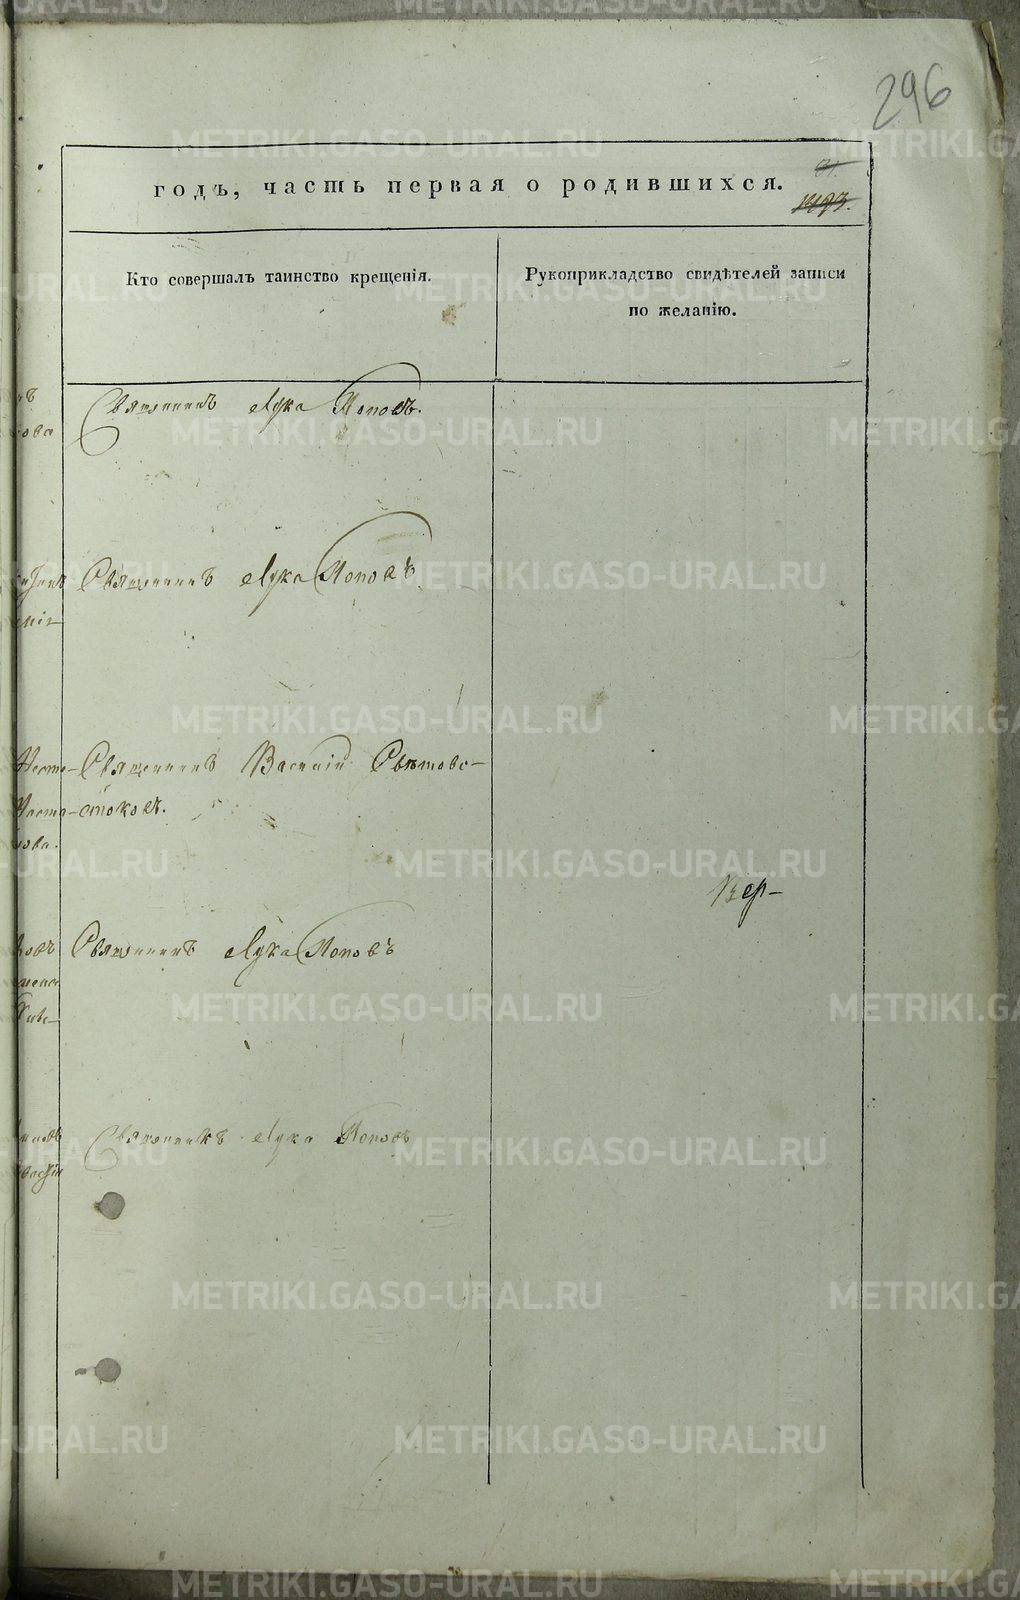 296
годъ, часть первая о родившихся.
Кто совершалъ таинство крещенія.
Рукоприкладство свидѣтелей записи
по желанію.
Священникъ Лука Поповъ.
Священникъ Лука Поповъ
Священникъ Василій Свѣтовс-
токовъ.
Вер-
Священникъ Лука Поповъ
Священникъ Лука Поповъ
METRIKI.GASO-URAL.RU